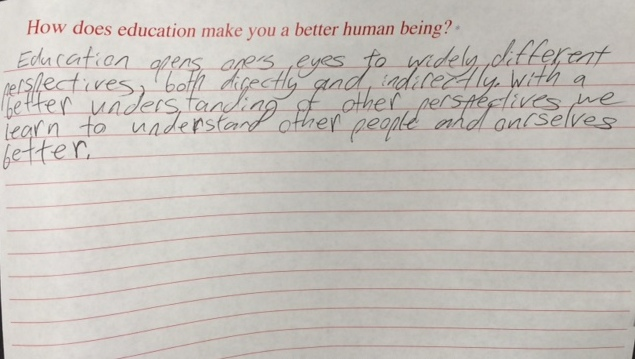 How does education make you a better human being?
Education opens one's eyes to widely different
perspectives, both directly and indirectly. With a
better understanding of other perspectives we
learn to understand other people and ourselves
better.